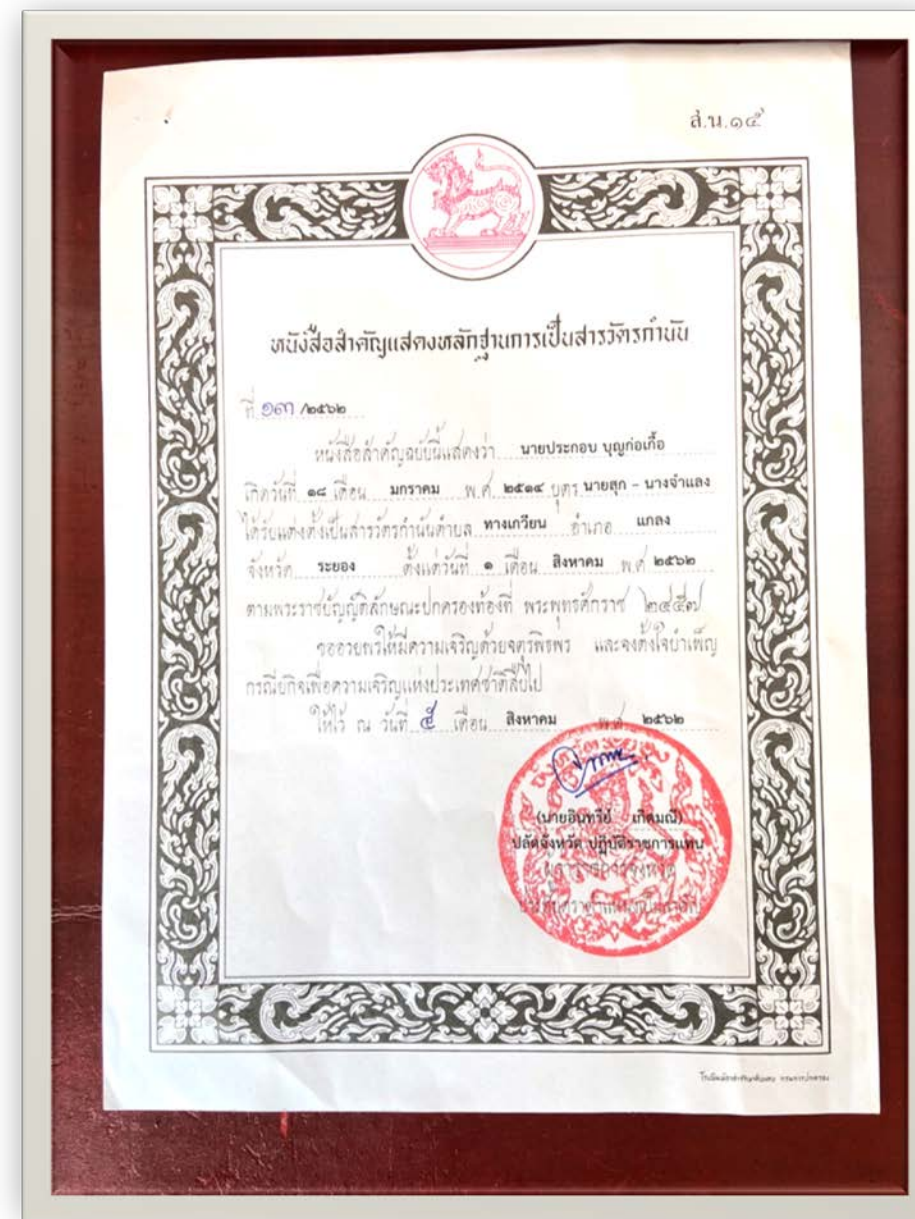 ส.น.๑๕
หนังสือสำคัญแสดงหลักฐานการเป็นสารวัตรกำนัน
ที่ ๑๓ /๒๕๖๒
หนังสือสำคัญฉบับนี้แสดงว่า นายประกอบ บุญก่อเกื้อ
เกิดวันที่ ๑๘ เดือน มกราคม พ.ศ. ๒๕๑๔ บุตร นายสุก - นางจำแลง
ได้รับแต่งตั้งเป็นสารวัตรกำนันตำบล ทางเกวียน อำเภอ แกลง
จังหวัด ระยอง ตั้งแต่วันที่ ๑ เดือน สิงหาคม พ.ศ ๒๕๖๒
ตามพระราชบัญญัติลักษณะปกครองท้องที่ พระพุทธศักราช ๒๔๕๗
ขออวยพรให้มีความเจริญด้วยจตุรพิธพร และจงตั้งใจบำเพ็ญ
กรณียกิจเพื่อความเจริญแห่งประเทศชาติสืบไป
ให้ไว้ ณ วันที่ ๕ เดือน สิงหาคม พ.ศ ๒๕๖๒
(นายอินทรีย์ เกิดมณี)
ปลัดจังหวัด ปฏิบัติราชการแทน
ผู้ว่าราชการจังหวัด
จังหวัดระยอง